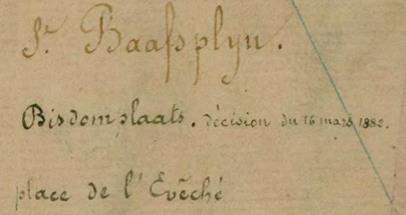 St Baafsplyn.
Bisdomplaats. décision du 16 mars 1882.
place de l'Evêché